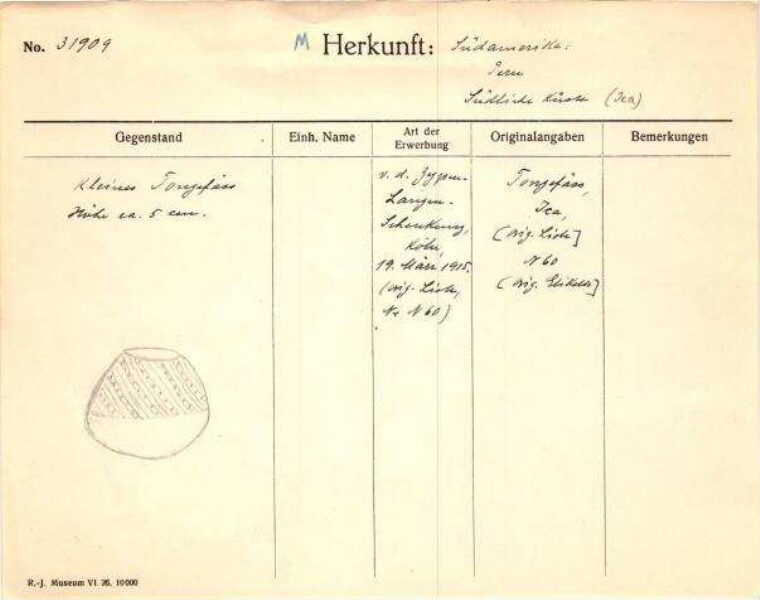 No. 31909
M Herkunft: Südamerika:
Peru
Südliche Küste (Ica)
Gegenstand
Einh. Name
Art der
Erwerbung
Originalangaben
Bemerkungen
Kleines Tongefäss
Höhe ca. 5 cm.
v. d. Zypen-
Langen-
Schenkung,
Köln,
19. März 1915.
(orig. Liste,
Nr N60)
Tongefäss,
Ica,
(orig. Liste]
N 60
(orig. Etikett]
R.-J. Museum VI. 26. 10000